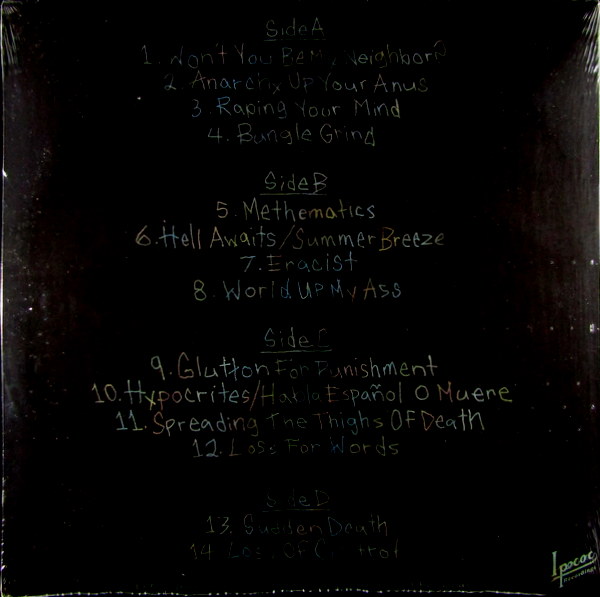 Side A
1. Won't You Be My Neighbor?
2. Anarchy Up Your Anus
3. Raping Your Mind
4. Bungle Grind
Side B
5. Methematics
6. Hell Awaits/Summer Breeze
7. Eracist
8. World Up My Ass
Side C
9. Glutton For Punishment
10. Hypocrites/Habla Español O Muere
11. Spreading The Thighs Of Death
12. Loss For Words
Side D
13. Sudden Death
14. Loss Of Control
Ipecac
Recordings